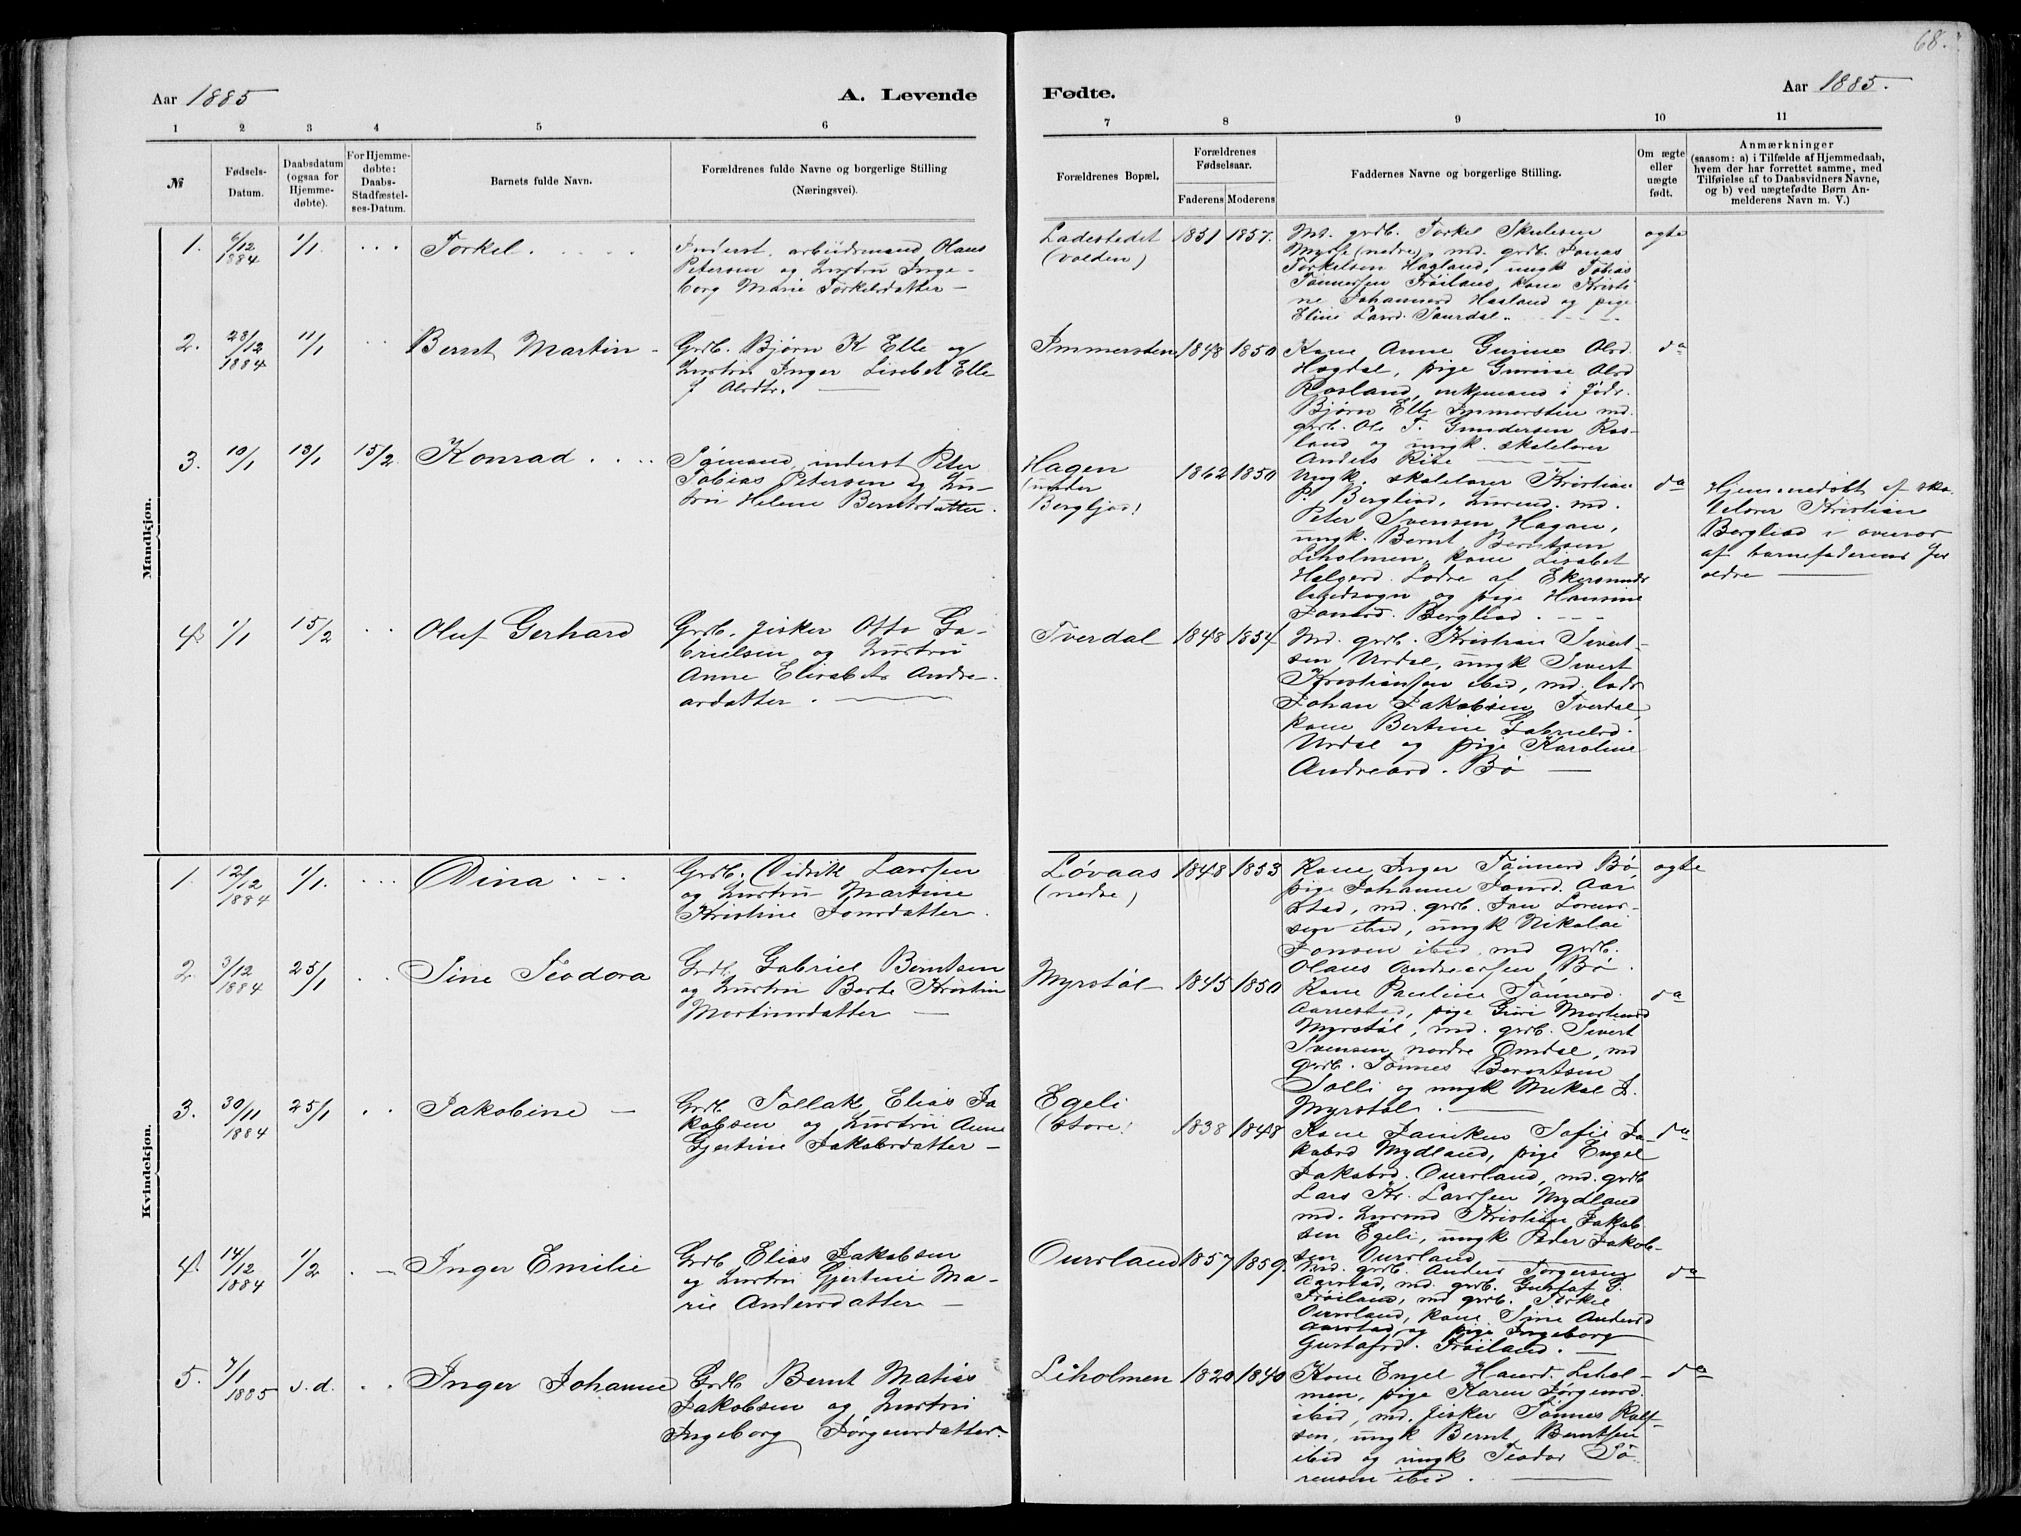 68.
Aar 1885
A. Levende
Fødte.
Aar 1885.
1 2 3 4 5 6 7 8 9 10 11
№
Fødsels-
Datum.
Daabsdatum
(ogsaa for
Hjemme-
døbte).
For Hjemme-
døbte:
Daabs-
Stadfæstel-
ses-Datum.
Barnets fulde Navn.
Forældrenes fulde Navne og borgerlige Stilling
(Næringsvei).
Forældrenes Bopæl.
Forældrenes
Fødselsaar.
Faderens Moderens
Faddernes Navne og borgerlige Stilling.
Om ægte
eller
uægte
født.
Anmærkninger
(saasom: a) i Tilfælde af Hjemmedaab,
hvem der har forrettet samme, med
Tilføielse af to Daabsvidners Navne,
og b) ved uægtefødte Børn An-
melderens Navn m. V.)
Mandkjøn.
1. 6/12 1884 1/1. Torkel.
Inderst, arbeidsmand Olaus
Petersen og hustru Inge-
borg Marie Torkelsdatter
Ladestedet
(volden)
1851 1857.
Md. grdb. Torkel Skulesen
Myrse (nedre), md. grdb. Jonas
Torkelsen Hogland, ungk Tobias
Tønnessen Frøiland, kone Kristi-
ne Johannesd Haaland og pige
Eline Larsd. Taurdal.
ægte
2. 28/12 1884 11/1 Bernt Martin
Grdb. Bjørn K Elle og
hustru Inger Lisabet Elle
f Alrdtr.
Immersten
1848 1850
Kone Anne Gurine Alrd.
Hogdal, pige Gurine Alrd
Rosland, enkemand i føder.
Bjørn Elle Immersten md.
grdb. Ole T. Gundersen Ros-
land og ungk. skolelærer
Anders Ribe
do
3. 10/1 13/1 15/2 Konrad
Sømand, inderst Peter
Tobias Petersen og hu-
stru Helene Berntsdatter.
Hagen
(under
Bergljod)
1862 1850
Ungk. skolelærer Kristian
P. Bergliod, husmd. md.
Peter Svensen Hagan,
ungk. Bernt Berntsen
Liholmen, kone Lisabet
Helgesd. Lædre af Ekersunds
landsogn og pige Hansine
Jonasd. Bergliod.
do
Hjemmedøbt af sko-
lelærer Kristian
Bergliod i overvær
af barnefaderens for
ældre
4. 1/1 15/2 Oluf Gerhard
Grdb. fisker Otto Ga-
brielsen og hustru
Anne Elisabet Andre-
asdatter.
Tverdal
1848 1854
Md. grdb. Kristian Sivert-
sen Urdal, ungk Sivert
Kristiansen ibid, md. lods
Johan Jakobsen Tverdal,
kone Bertine Gabrielsd.
Urdal og pige Karoline
Andreasd. Bø
Kvindekjøn.
1. 12/12 1884 1/1. Dina
Grdb. Didrik Larssen
og hustru Martine
Kristine Jonsdatter.
Løvaas
(nedre)
1848 1853
Kone Inger Tønnesd Bø,
pige Johanne Jonsd. Aar
stad, md. grdb. Jan Lorens-
sen ibid, ungk Nikolai
Jonsen ibid, md grdb.
Olaus Andreassen Bø.
ægte
2. 3/12 1884 25/1 Sine Teodora
Grdb. Gabriel Berntsen
og hustru Berte Kristin
Mortensdatter
Myrstøl
1845 1850
Kone Pauline Tønnesd.
Aarrestad, pige Guri Mortensd
Myrstøl, md. grdb. Sivert
Svensen nordre Omdal, md
grdb. Tønnes Berentsen
Solli og ungk Mikal J.
Myrstøl.
do
3. 30/11 1884 25/1 Jakobine
Grdb Tollak Elias Ja
kobsen og hustru Anne
Gjertine Jakobsdatter
Egeli
(store)
1838 1848
Kone Janiken Sofie Ja-
kobsd Mydland, pige Engel
Jakobsd. Oursland, md. grdb
Lars Kr. Larssen Mydland
md. husmd Kristian Jakob
sen Egeli, ungk Peder Jakob-
sen Oursland
do
4. 14/12 1884 1/2 Inger Emilie
Grdb Elias Jakobsen
og hustru Gjertine Ma-
rie Andersdatter
Oursland
1857 1859.
Md. grdb. Anders Torgersen
Aarstad, md. grdb. Gustaf G.
Frøiland, md grdb. Torkel
Oursland, kone Sine Andersd
Aarstad og pige Ingeborg
Gustafsd. Frøiland.
do
5. 7/1 1885 s.d. Inger Johanne
Grdb Bernt Matias
Jakobsen og hustru
Ingeborg Jørgensdatter.
Liholmen
1820 1840
Kone Engel Hansd. Lihol-
men, pige Karen Jørgensd.
ibid, md. fisker Tønnes Rolf-
sen, ungk Bernt Berntsen
ibid og ungk Teodor Sø-
rensen ibid.
do